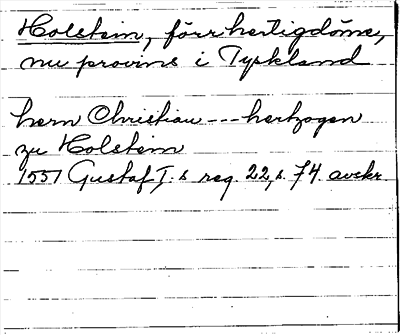 Holstein, förr hertigdöme,
nu provins i Tyskland
hern Christian --- hertzogen
zu Holstein
1551 Gustaf I:s reg. 22, s. 74. avskr